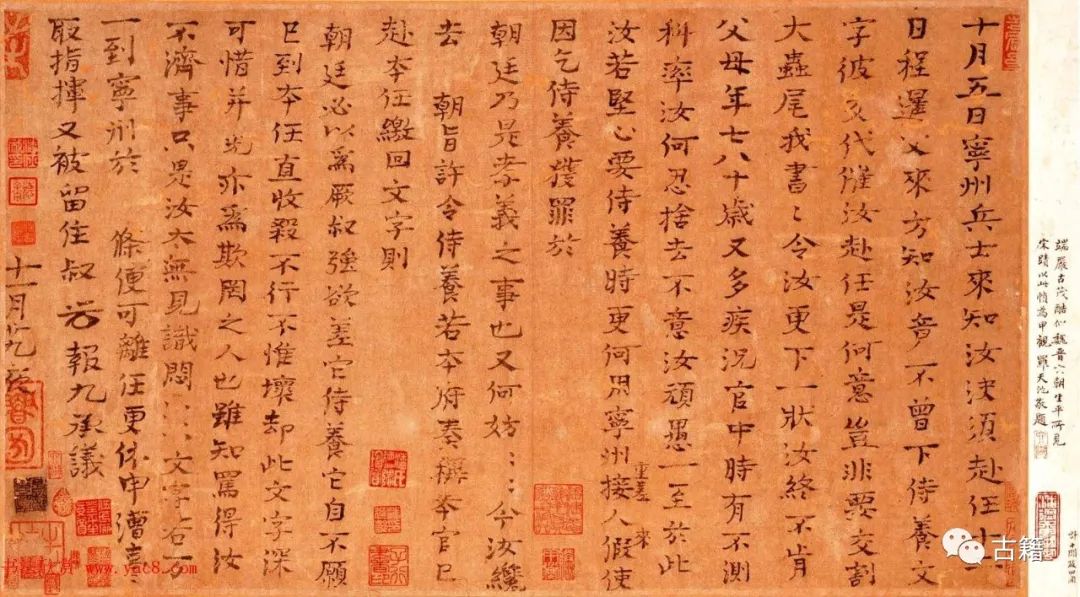 十月五日寧州兵士來知汝決須赴任十一
日程暹父來方知汝竟不曾下侍養文
字彼交代催汝赴任是何意豈非要交割
大蟲尾我書〻令汝更下一狀汝終不肯
父母年七八十歲又多疾況官中時有不測
科率汝何忍捨去不意汝頑愚一至於此
汝若堅心要侍養時更何用寧州接人假使
重難 來
因乞侍養獲罪於
朝廷乃是孝義之事也又何妨〻〻今汝纔
去 朝旨許令侍養若本府奏稱本官已
赴本任繳回文字則
朝廷必以爲厥叔強欲差它侍養它自不願
已到本任直收殺不行不惟壞却此文字深
可惜并光亦爲欺罔之人也雖知罵得汝
不濟事只是汝太無見識悶〻〻文字若万
一到寧州於 條便可離任更休申漕臺
取指揮又被留住叔 報九承議
十一月
端嚴古茂酷似魏晉六朝生平所見
宋蹟以此幀爲甲觀 羅天池敬題
古籍
www.yac8.com